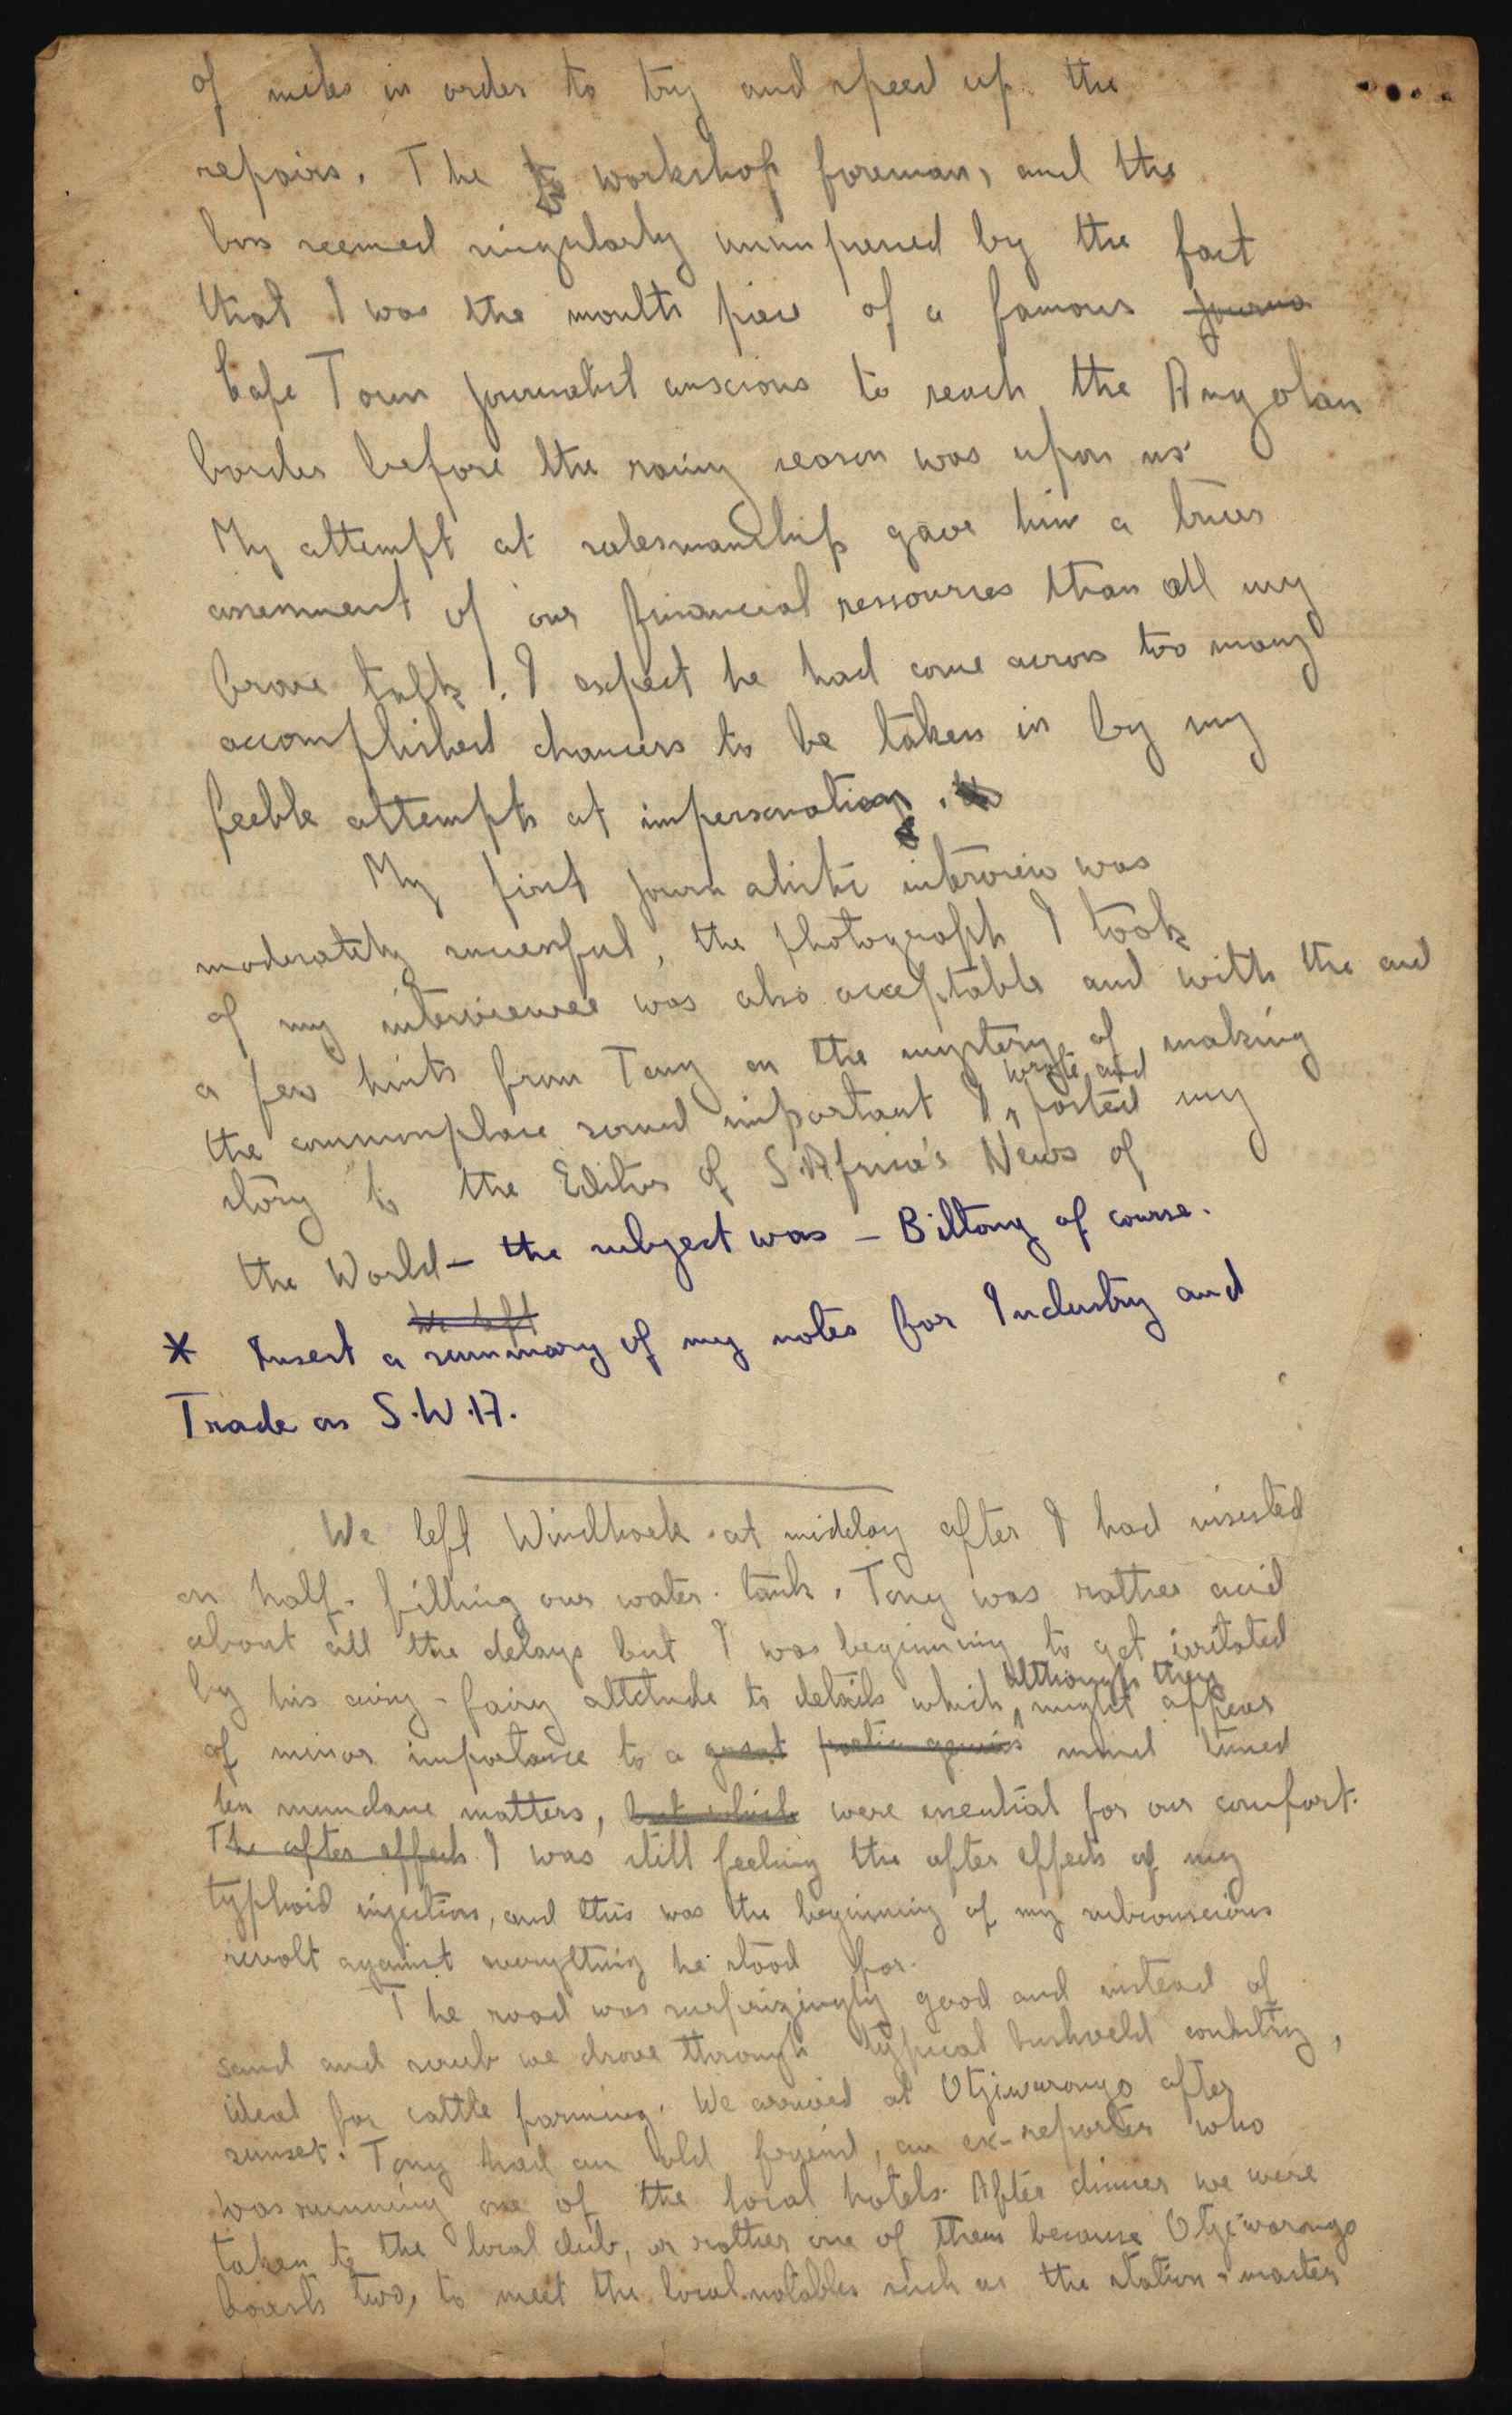 of miles in order to try and speed up the
repairs. The workshop foreman, and the
boss seemed singularly unimpressed by the fact
that I was the mouth piece of a famous journa
Cape Town journalist anscious to reach the Angolan
border before the rainy season was upon us.
My attempt at salesmanship gave him a truer
assessment of our financial ressources than all my
brave talk! I expect he had come across too many
accomplished chancers to be taken in by my
feeble attempts at impersonation.
My first journalistic interview was
moderately successful, the photograph I took
of my interviewee was also acceptable and with the aid
a few hints from Tony on the mystery of making
the commonplace sound important I wrote and posted my
story to the Editor of S. Africa's News of
the World – the subject was – Biltong of course.
We left
* Insert a summary of my notes for Industry and
Trade on S.W.A.
We left Windhoek at midday after I had insisted
on half-filling our water-tank. Tony was rather acid
about all the delays but I was beginning to get irritated
by his airy-fairy attitude to details which although they might appear
of minor importance to a great poetic genius mind tuned
to mundane matters, but which were essential for our comfort.
The after effects I was still feeling the after effects of my
typhoid injection, and this was the beginning of my subconscious
revolt against everything he stood for.
The road was surprizingly good and instead of
sand and scrub we drove through typical bushveld country,
ideal for cattle farming. We arrived at Otjiwarongo after
sunset. Tony had an old freind, an ex-reporter who
was running one of the local hotels. After dinner we were
taken to the local club, or rather one of them because Otjiwarongo
boasts two, to meet the local notables such as the station-master